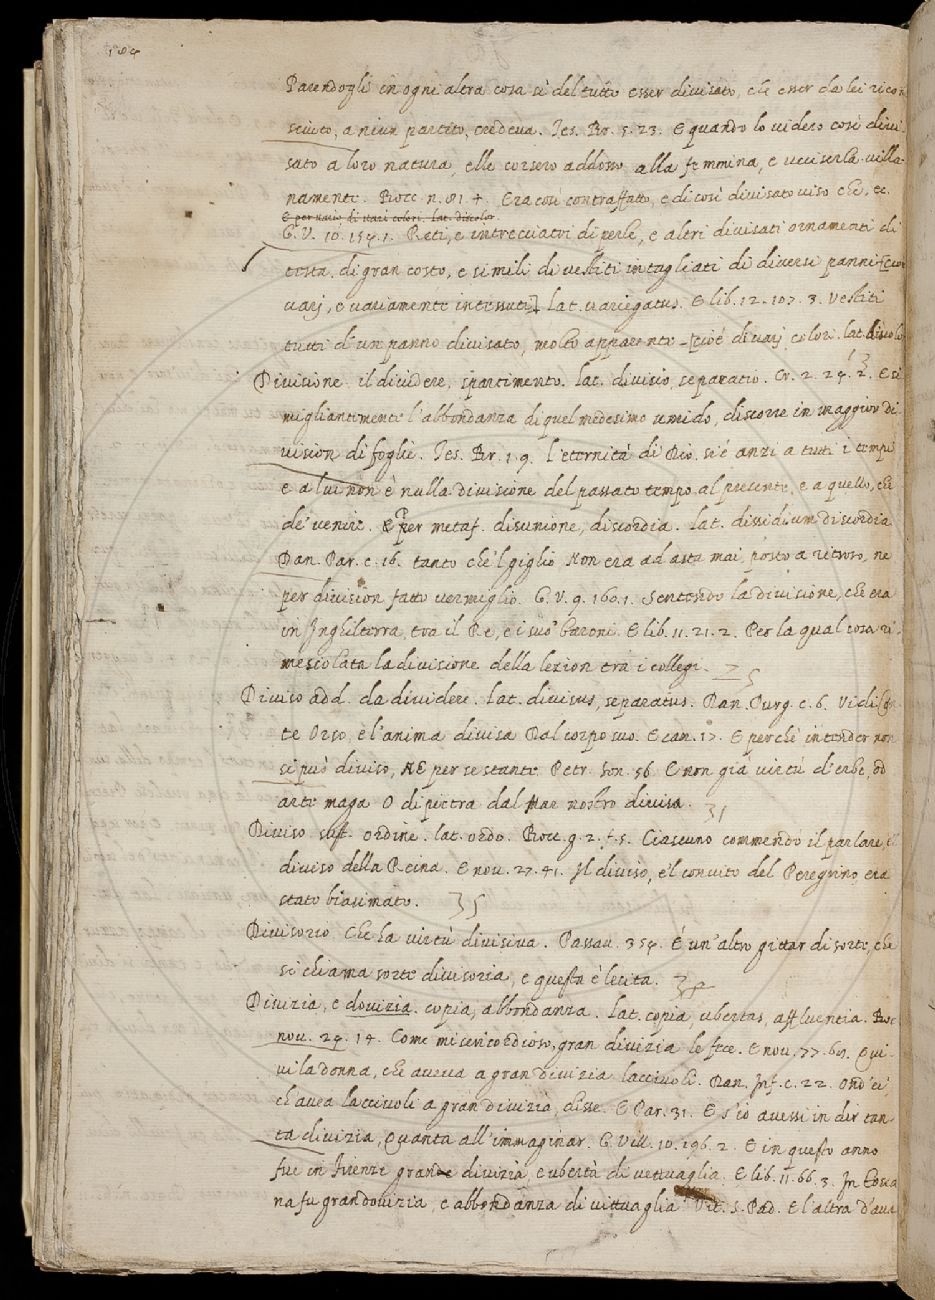 Parendogli in ogni altra cosa sì del tutto esser divisato, che esser da lei ricon
sciuto, a niun partito, credeva. Tes. Br. 5. 23. E quando lo videro così divi-
sato a loro natura, elle corsero addosso alla femmina, e ucciserla villa-
namente. Bocc. n. 81. 4. Era così contraffatto, e di così divisato viso che, ec.
E per vario di varj colori. lat. discolor.
G. V. 10. 154. 1. Reti, e intrecciatoi di perle, e altri divisati ornamenti di
testa, di gran costo, e simili di vestiti intagliati di diversi panni [cioè
varj, e variamente intessuti] lat. variegatus. E lib. 12. 107. 3. Vestiti
tutti d'un panno divisato, molto apparente [cioè di varj colori. lat.
Divisione. il dividere, spartimento. lat. divisio, separatio. Cr. 2. 24. 2. E si
migliantemente l'abbondanza di quel medesimo umido, discorre in maggior di
vision di foglie. Tes. Br. 1. 9. L'eternità di Dio si è anzi a tutti i tempi
e a lui non è nulla divisione del passato tempo al presente, e a quello, che
de' venire. E per metaf. disunione, discordia. lat. dissidium discordia
Dan. Par. c. 16. tanto che 'l giglio Non era ad asta mai posto a ritroso, ne
per division fatto vermiglio. G. V. 9. 160. 1. Sentendo la divisione, che era
in Inghilterra, tra il Re, e i suo' baroni. E lib. 11. 21. 2. Per la qual cosa ri-
mescolata la divisione della lezion tra i collegi.
Diviso add. da dividere. lat. divisus, separatus. Dan. Purg. c. 6. Vidi Con
te Orso, e l'anima divisa Dal corpo suo. E can. 17. E perchè intender non
si può diviso, Nè per se stante. Petr. Son. 56. E non già virtù d'erbe, od
arte maga O di pietra dal Mar nostro divisa. 31
Diviso sust. ordine. lat. ordo. Bocc. g. 2. f. 5. Ciascuno commendò il parlare, e 'l
diviso della Reina. E nov. 27. 41. Il diviso, e 'l convito del Peregrino era
stato biasimato. 35
Divisorio Che ha virtù divisiva. Passav. 354. È un'altro gittar di sorte, che
si chiama sorte divisoria, e questa è lecita.
Divizia, e dovizia. copia, abbondanza. lat. copia, ubertas, affluentia. Boc
nov. 24. 14. Come misericordioso, gran divizia le fece. E nov. 77. 60. Qui-
vi la donna, che aveva a gran divizia lacciuoli. Dan. Inf. c. 22. Ond'ei,
ch'avea lacciuoli a gran divizia, disse. E Par. 31. E s'io avessi in dir tan
ta divizia, Quanta all'immaginar. G. Vill. 10. 196. 2. E in questo anno
fue in Firenze grande divizia, e ubertà di vettuaglia. E lib. 11. 66. 3. In Tosca
na fu gran dovizia, e abbondanza di vittuaglia. Vit. S. Pad. E l'altra d'ava